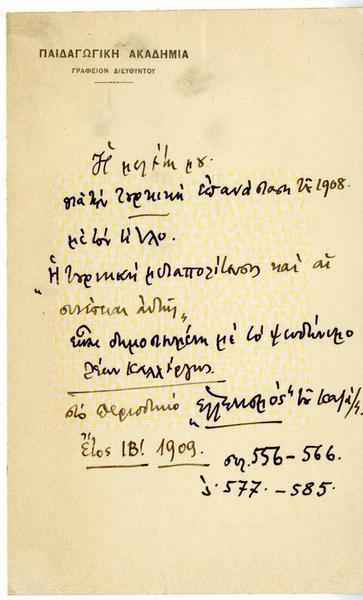 ΠΑΙΔΑΓΩΓΙΚΗ ΑΚΑΔΗΜΙΑ
ΓΡΑΦΕΙΟΝ ΔΙΕΥΘΥΝΤΟΥ
Ἡ μελέτη μου
γιὰ τὴν Τουρκικὴ ἐπανάσταση τοῦ 1908
μὲ τὸν τίτλο.
"Ἡ Τουρκικὴ μεταπολίτευσις καὶ αἱ
συνέπειαι αὐτῆς"
εἶναι δημοσιευμένη μὲ τὸ ψευδώνυμο
Λέων Καλλέργης
στὸ περιοδικὸ "Ἑλληνισμός" τοῦ
Ἔτος ΙΒ! 1909. σελ. 556-566.
577. -585.